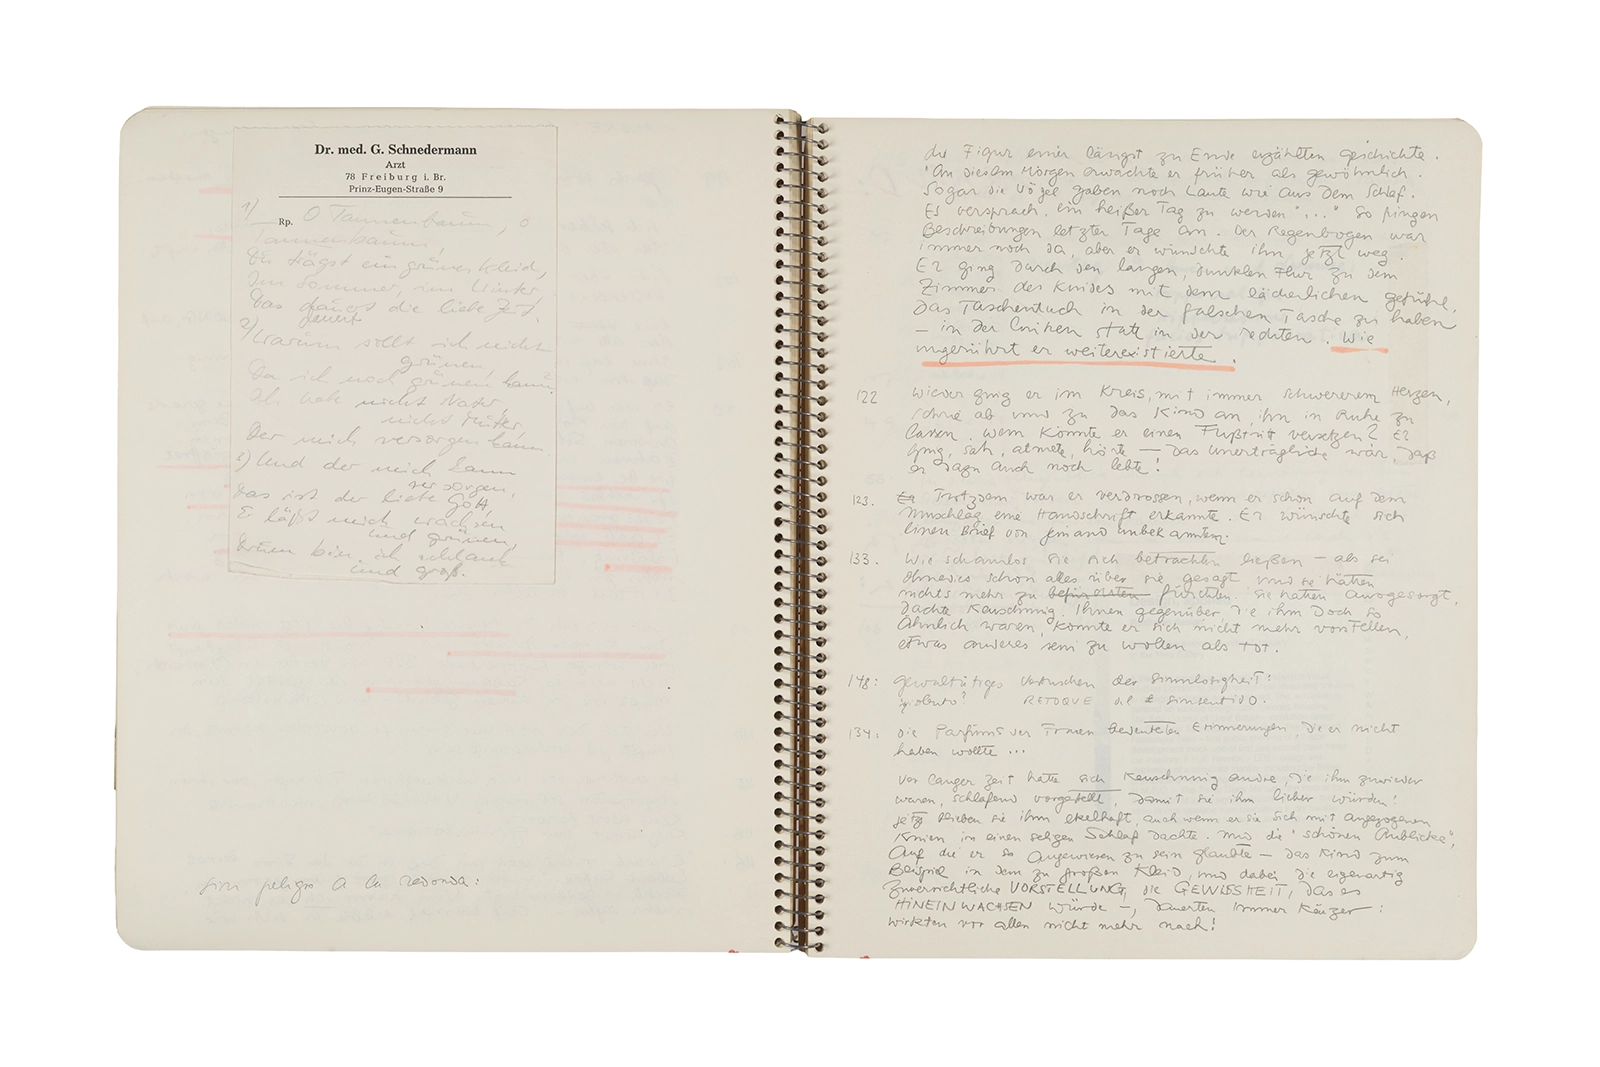 Dr. med. G. Schnedermann
Arzt
78 Freiburg i. Br.
Prinz-Eugen-Straße 9
1)
Rp. O Tannenbaum, o
Tannenbaum,
Du trägst ein grünes Kleid,
Im Sommer, im Winter
Das die liebe Zeit.
2) Warum sollt ich nicht
grünen,
Da ich noch grünen kann?
Ich hab nicht Vater,
nicht Mutter,
Der mich versorgen kann.
3) Und der mich kann
versorgen,
Das ist der liebe Gott,
Er läßt mich wachsen
und grünen,
Drum bin ich schlank
und groß.
sin peligro a la redonda:
die Figur einer längst zu Ende erzählten Geschichte.
"An diesem Morgen erwachte er früher als gewöhnlich.
Sogar die Vögel gaben noch Laute wie aus dem Schlaf.
Es versprach, ein heißer Tag zu werden"..." So fingen
Beschreibungen letzter Tage an. Der Regenbogen war
immer noch da, aber er wünschte ihn jetzt weg.
Er ging durch den langen, dunklen Flur zu dem
Zimmer des Kindes mit dem lächerlichen Gefühl,
das Taschentuch in der falschen Tasche zu haben
– in der linken statt in der rechten. Wie
ungerührt er weiterexistierte.
122 Wieder ging er im Kreis, mit immer schwererem Herzen,
schrie ab und zu das Kind an, ihn in Ruhe zu
lassen. Wem könnte er einen Fußtritt versetzen? Er
ging, sah, atmete, hörte – das Unerträgliche war, daß
er dazu auch noch lebte!
123. Er Trotzdem war er verdrossen, wenn er schon auf dem
Umschlag eine Handschrift erkannte. Er wünschte sich
einen Brief von jemand Unbekanntem.
133. Wie schamlos sie sich betrachten ließen – als sei
ohnedies schon alles über sie gesagt und sie hätten
nichts mehr zu befürchten fürchten. Sie hatten ausgesorgt,
dachte Keuschnig. Ihnen gegenüber, die ihm doch so
ähnlich waren, konnte er sich nicht mehr vorstellen,
etwas anderes sein zu wollen als tot.
148: Gewalttätiges Vertuschen der Sinnlosigkeit:
RETOQUE del sinsentido.
134: Die Parfüms der Frauen bedeuteten Erinnerungen, die er nicht
haben wollte ...
Vor langer Zeit hatte sich Keuschnig andre, die ihm zuwider
waren, schlafend vorgestellt, damit sie ihm lieber würden!
Jetzt blieben sie ihm ekelhaft, auch wenn er sie sich mit angezogenen
Knien in einen seligen Schlaf dachte. Und die "schönen Anblicke",
auf die er so angewiesen zu sein glaubte – das Kind zum
Beispiel in dem zu großen Kleid, und dabei die eigenartig
zuversichtliche VORSTELLUNG, die GEWISSHEIT, daß es
HINEINWACHSEN würde –, dauerten immer kürzer:
wirkten vor allem nicht mehr nach!